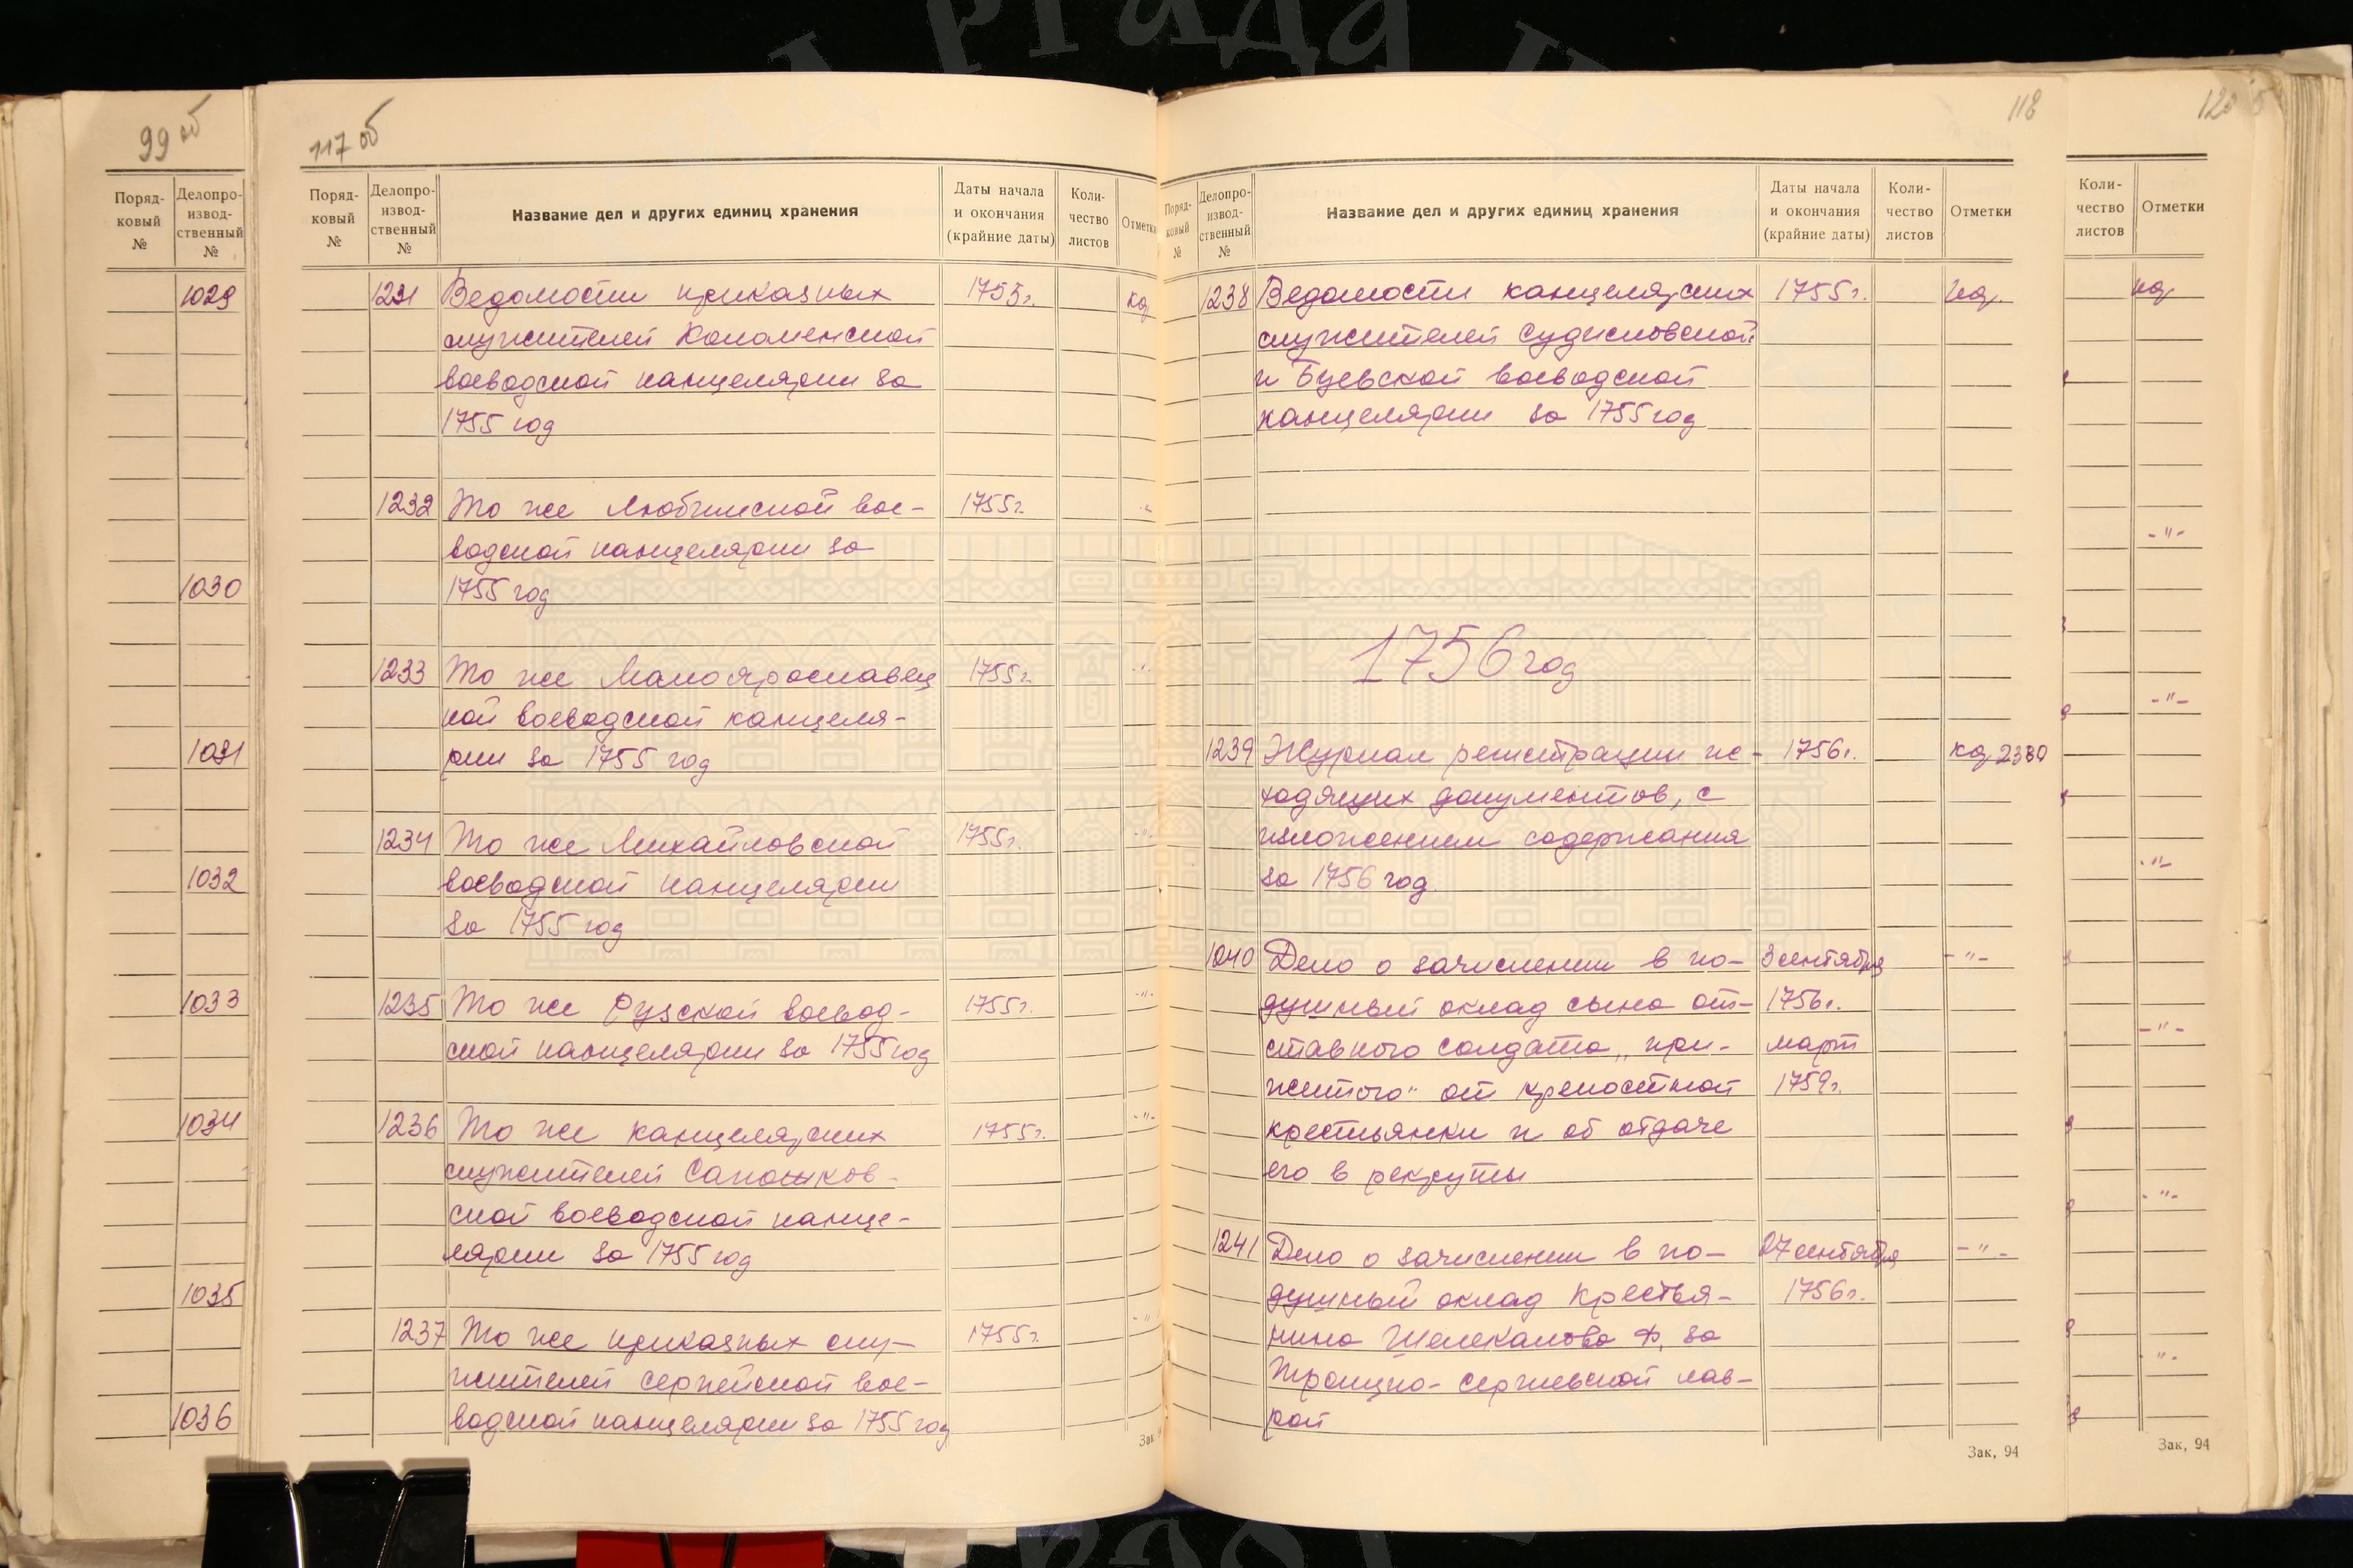 99 об
Поряд-
ковый
№
Делопро-
извод-
ственный
№
1029
1030
1031
1032
1033
1034
1035
1036
117 об
Поряд-
ковый
№
Делопро-
извод-
ственный
№
Название дел и других единиц хранения
Даты начала
и окончания
(крайние даты)
Коли-
чество
листов
Отметки
1231 Ведомости приказных 1755 г.
служителей Коломенской
воеводской канцелярии за
1755 год
1232 То же Любимской вое- 1755 г.
водской канцелярии за
1755 год
1233 То же Малоярославец 1755 г. -"-
кой воеводской канцеля-
рии за 1755 год
1234 То же Михайловской 1755 г. -"-
воеводской канцелярии
за 1755 год
1235 То же Рузской воевод- 1755 г. -"-
ской канцелярии за 1755 год
1236 То же канцелярских 1755 г. -"-
служителей Сапожков-
ской воеводской канце-
лярии за 1755 год
1237 То же приказных слу- 1755 г. -"-
жителей Серпейской вое-
водской канцелярии за 1755 год
118
Поряд-
ковый
№
Делопро-
извод-
ственный
№
Название дел и других единиц хранения
Даты начала
и окончания
(крайние даты)
Коли-
чество
листов
Отметки
1238 Ведомости канцелярских 1755 г.
служителей Судиславской
и Буевской воеводской
канцелярии за 1755 год
1756 год
1239 Журнал регистрации ис- 1756 г. 2330
ходящих документов, с
изложением содержания
за 1756 год
1240 Дело о зачислении в по- 3 сентября -"-
душный оклад сына от- 1756 г.
ставного солдата „при- март
житого" от крепостной 1759 г.
крестьянки и об отдаче
его в рекруты
1241 Дело о зачислении в по- 27 сентября -"-
душный оклад крестья- 1756 г.
нина Шелекалова Ф. за
Троицко-Сергиевской лав-
рой
Зак. 94
Коли-
чество
листов
Отметки
-"-
-"-
-"-
-"-
-"-
-"-
Зак. 94